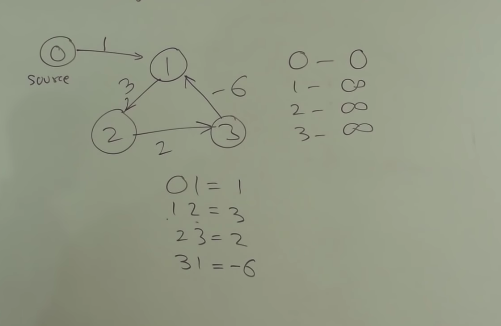 0
1
source
1
3
-6
2
3
2
0 - 0
1 - ∞
2 - ∞
3 - ∞
01 = 1
12 = 3
23 = 2
31 = -6